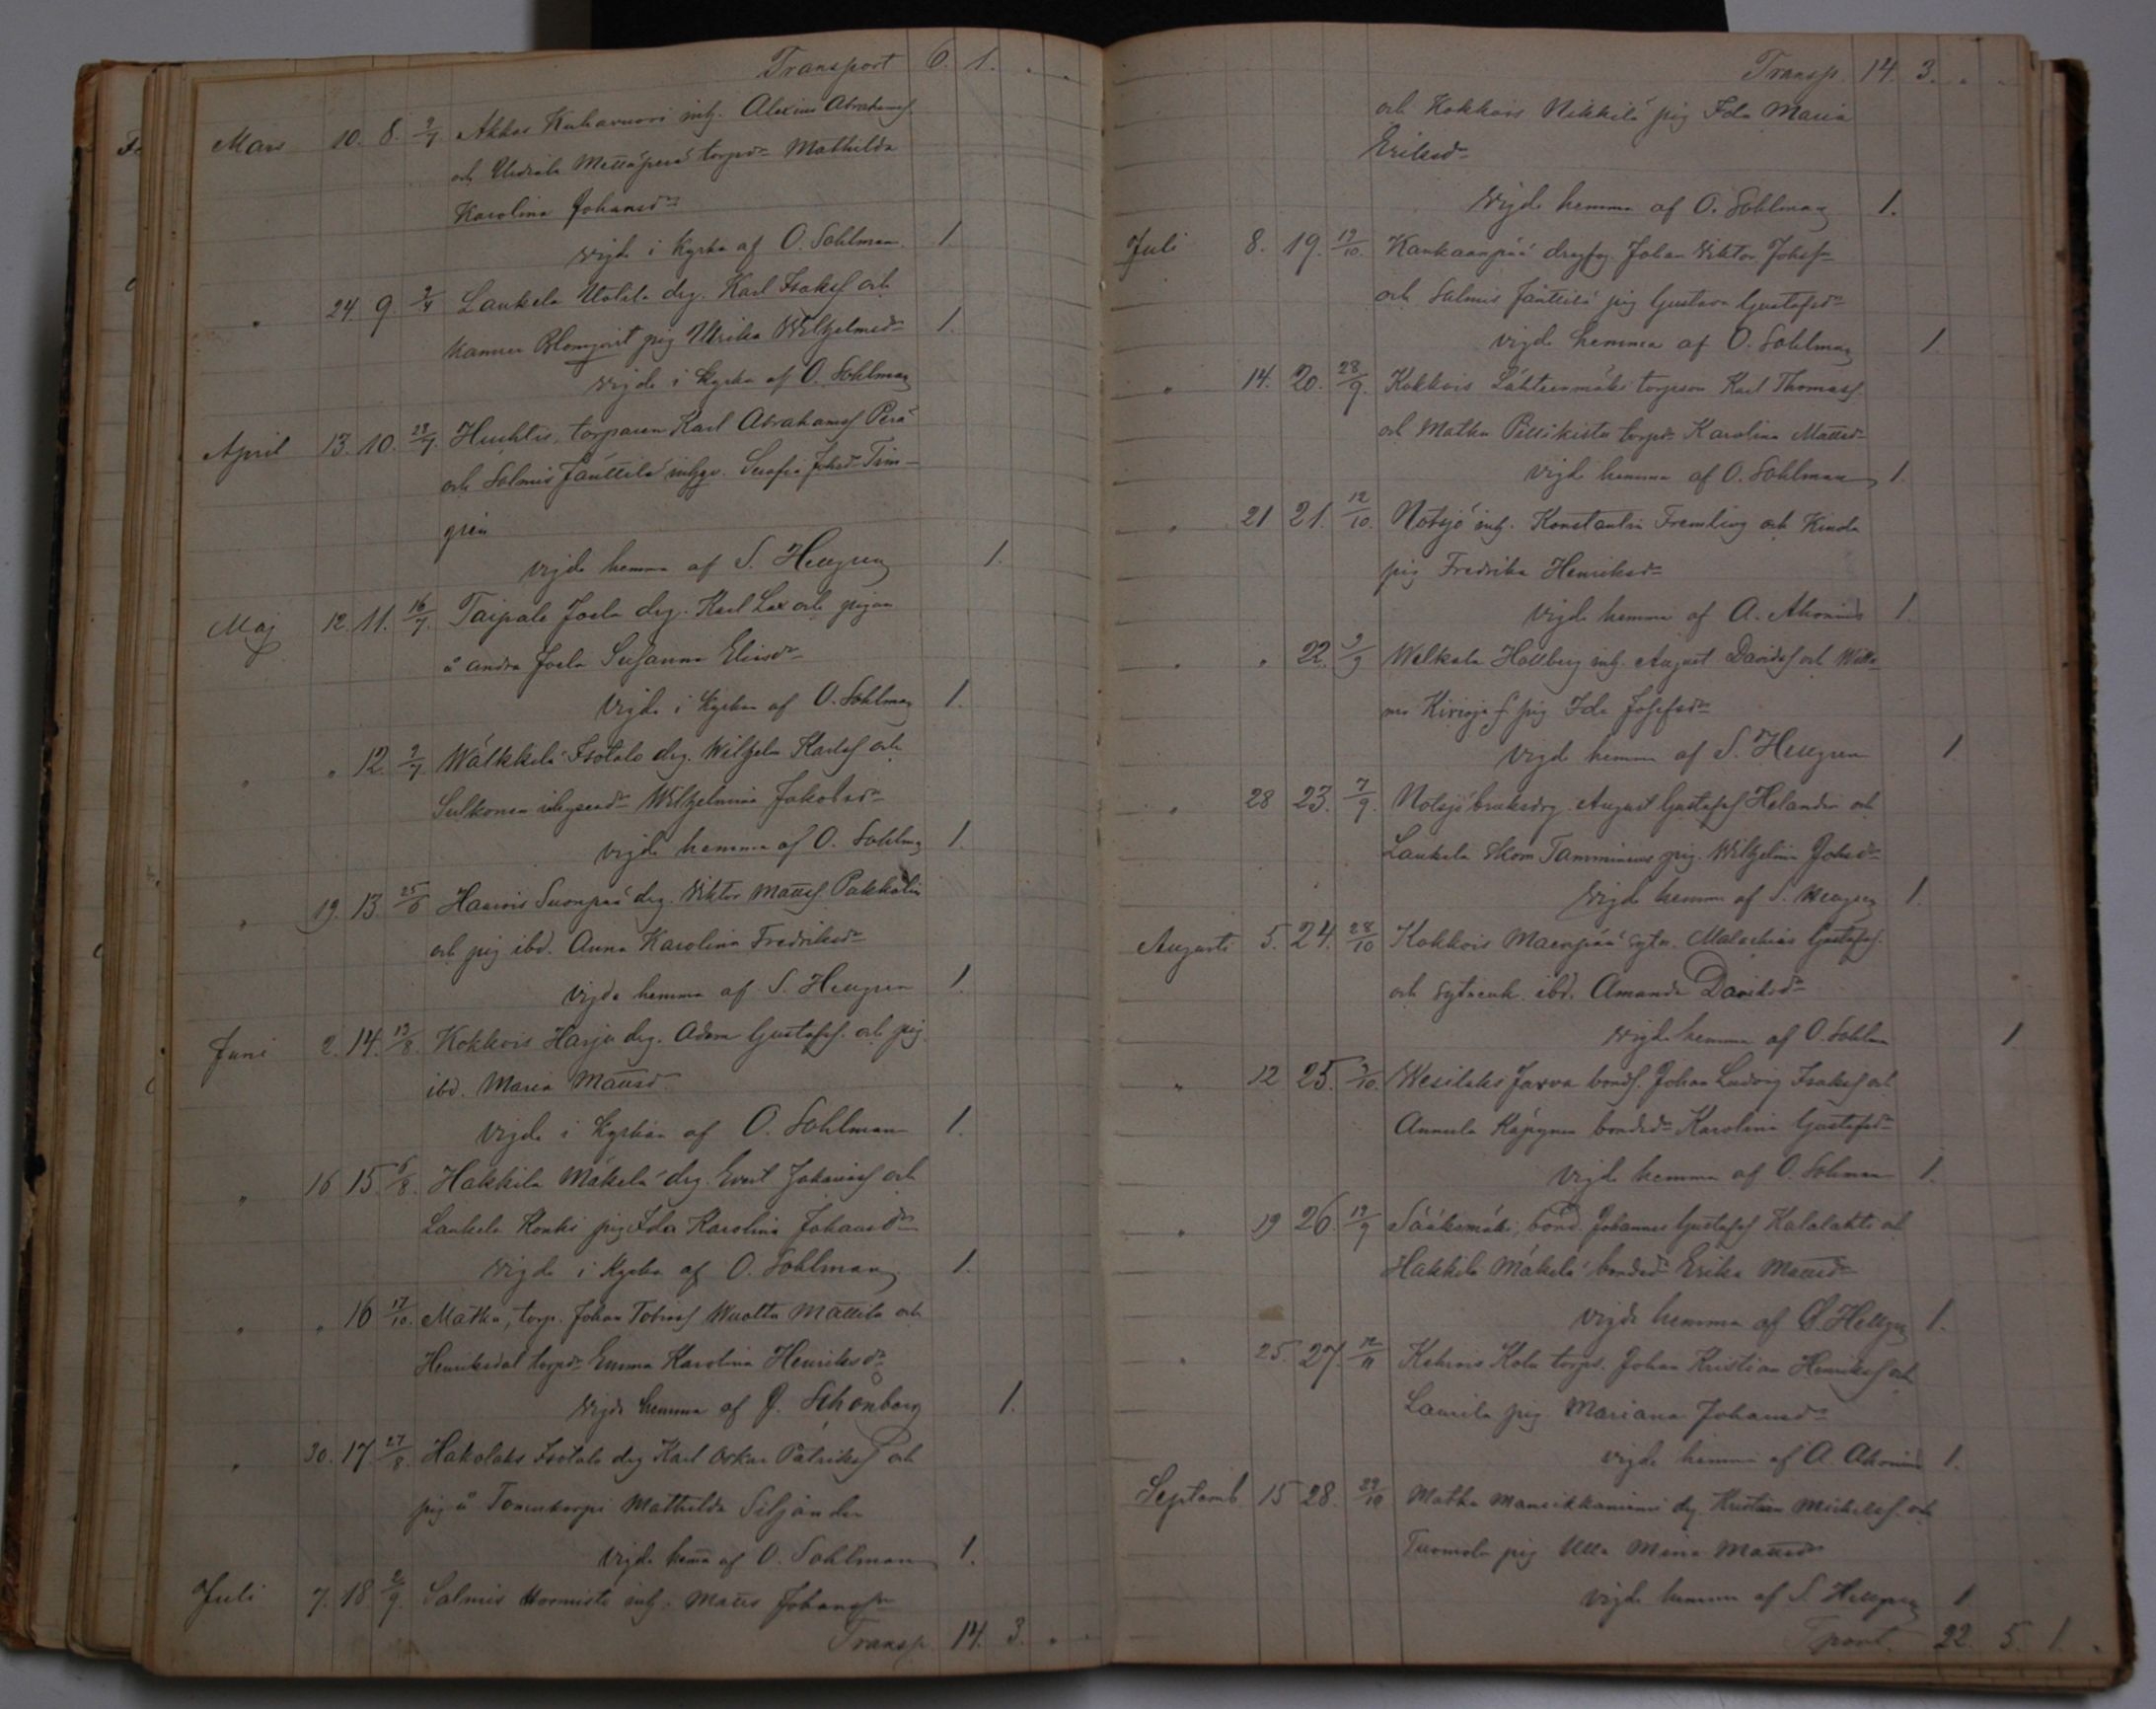 Transport 6. 1.
Mars 10. 8. 2/7. Akkas inh. Alexius Abrahamss.
och Urdiala Metsäperä torpdr Mathilda
Karolina Johansdr
vigde i kyrka af O. Sohlman. 1
" 24 9. 2/4 Laukela Utolila drg. Karl Isakss och
Kanner Blomqvist pig Ulrika Wilhelmsdr 1.
vigde i kyrka af O. Sohlman
April 13. 10. 28/7. Huhtis, torparen Karl Abrahamss Perä
och Salmis Jänttilä inhys. Serafia Johsdr Tim-
grén
vigde hemma af S. Hellgren 1.
Maj 12. 11. 16/7. Taipale Joela drg. Karl Lax och pigan
å andra Joela Susanna Eliasdr
vigde i kyrkan af O. Sohlman 1.
" " 12. 2/7. Wälkkilä Isotalo drg. Wilhelm Karlss och
Sulkonen inhysesdr Wilhelmina Jakobsdr
vigde hemma af O. Sohlman 1.
" 19. 13. 25/8 Haavis Suonpää drg. Viktor Mattss. Pakkalin
och pig ibd. Anna Karolina Fredriksdr
vigde hemma af S. Hellgren 1.
Juni 2. 14. 13/8. Kokkois Harju drg. Adam Gustafss. och pig.
ibd. Maria Mattsd.
vigde i kyrkan af O. Sohlman 1.
" 16 15. 6/8. Hakkila Mäkelä drg. Evert Johanss och
Laukela Konki pig Ida Karolina Johansdr
vigde i kyrka af O. Sohlman 1.
" " 16 17/10. Matku, torp. Johan Tobiass Wuolta Mattila och
Henriksdal torpdr Emma Karolina Henriksdr
vigde hemma af J. Schönberg 1.
" 30. 17. 27/8. Hakolaks Isotalo drg Karl Oskar Patrikss och
pig å Tomenkorpi Mathilda Seljander
vigde hemma af O. Sohlman 1.
Juli 7. 18 2/9. Salmis Hormisto inh. Matts Johanss
Transp. 14. 3. " "
Transp. 14. 3. " "
och Kokkois Nikkilä pig Ida Maria
Eriksdr
vigde hemma af O. Sohlman 1.
Juli 8. 19. 19/10. Kankaanpää Johan Viktor Johss
och Salmis Jänttilä pig Gustava Gustafsdr
vigde hemma af O. Sohlman 1.
" 14. 20. 28/9. Kokkois Lähteenmäki torpson Karl Thomass
och Matku Pillikisto torpdr Karolina Mattsdr
vigde hemma af O. Sohlman 1.
" 21 21. 12/10. Notsjö inh. Konstantin Fremling och Kinda
pig Fredrika Henriksdr
vigde hemma af A. Ahonius 1.
" " 22. 2/9 Welkala Hollberg inh. August Davidss och
pig Ida Josefsdr
vigde hemma af S. Hellgren 1
" 28 23. 7/9. Notsjö bruksdrg. August Gustafss Helander och
Laukela Skom Tamminens pig. Wilhelmina Johsdr
vigde hemma af S. Hellgren 1.
Augusti 5. 24. 28/10 Kokkois Maenpää sytn. Malachias Gustafss.
och sytnenk. ibd. Amanda Davidsdr
vigde hemma af O. Sohlman 1.
" 12 25. 2/10. Wesilaks Jarva bonds. Johan Ludvig Isakss och
Annula Räpynen bondsdr Karolina Gustafsdr
vigde hemma af O. Sohman 1.
" 19 26. 19/9 Sääksmäki, bond. Johannes Gustafss Kalalahti och
Hakkila Mäkelä bondsdr Erika Mattsdr
vigde hemma af S. Hellgren 1.
" 25. 27. 12/11 Kehrois Kola torps. Johan Kristian Henrikss och
Laurila pig Mariana Johansdr
vigde hemma af A. Ahonius 1.
Septemb 15 28. 29/10 Matku Mansikkaniemi drg Kristian Mickelss. och
Tuomola pig Ulla Mina Mattsdr
vigde hemma af S. Hellgren 1
Tport. 22. 5. 1. "